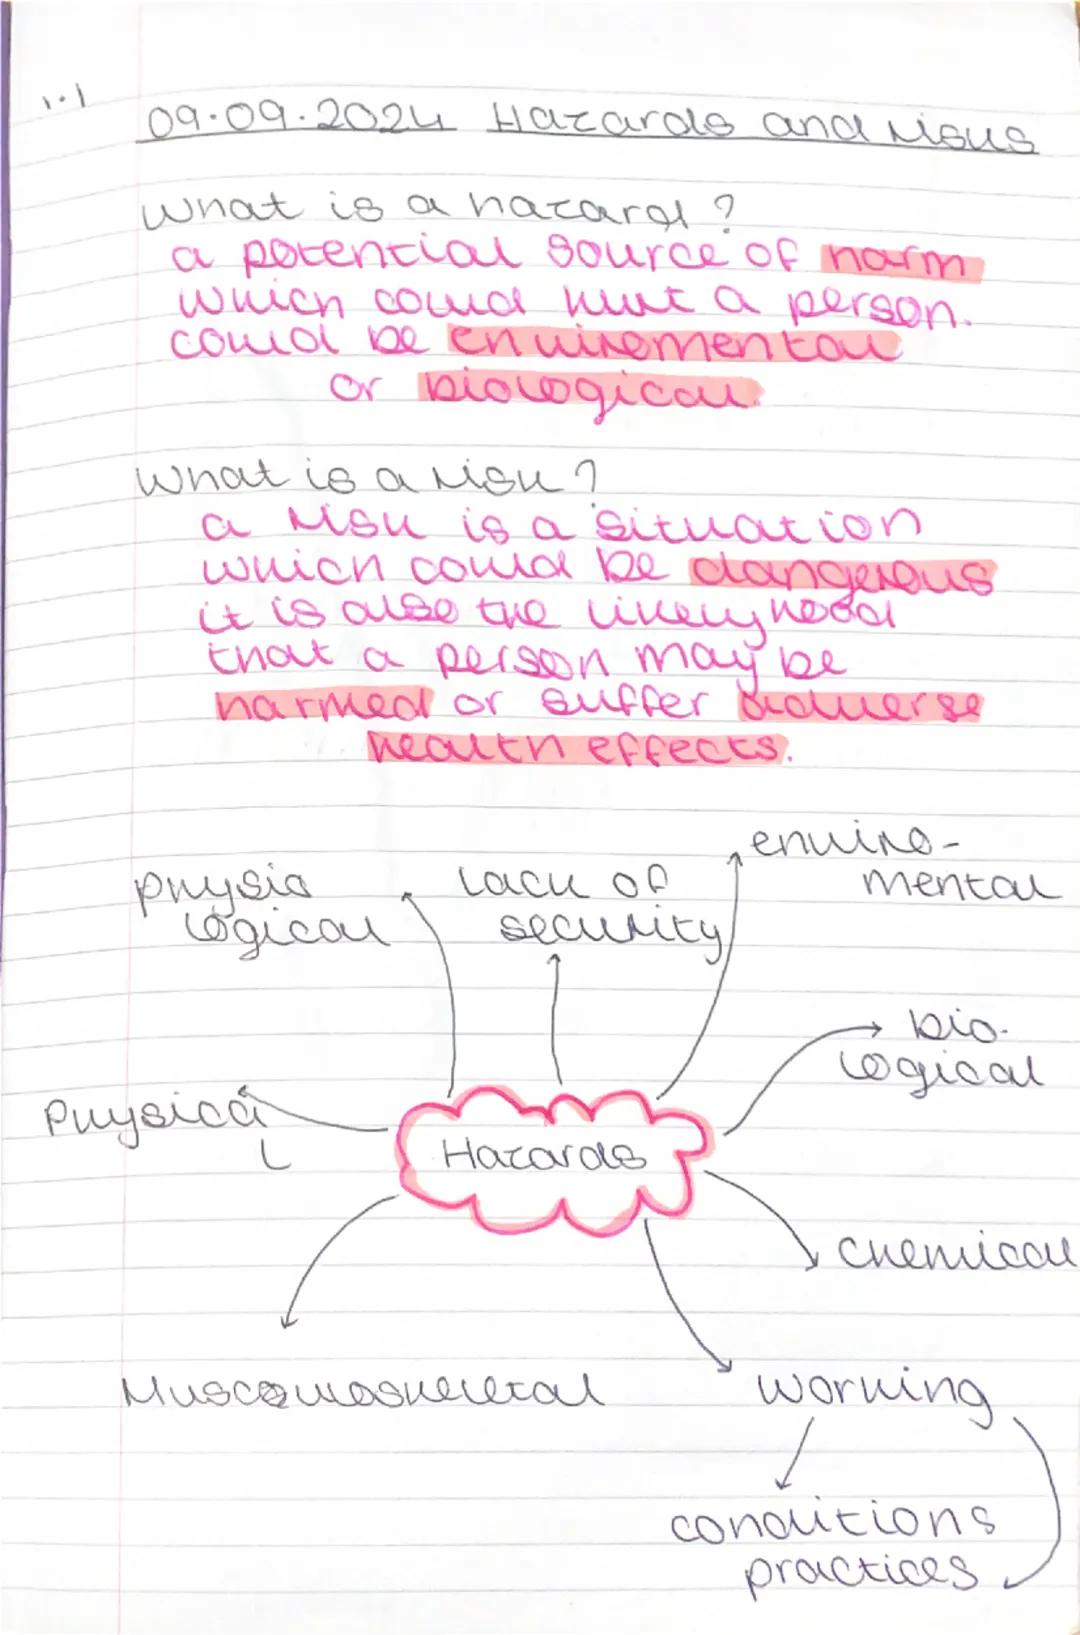 1.1
09.09.2024 Hazards and risks
What is a hazard?
a potential source of harm
which could hurt a person.
could be enviromental
or biological.
What is a risk?
a risk is a situation
which could be dangerous
it is also the likelyhood
that a person may be
harmed or suffer adverse
health effects.
enviro-
mental
physio
logical
Lack of
security
bio-
logical
Physica
l
Hazards
chemical
Muscoloskeletal
working
conditions
practices